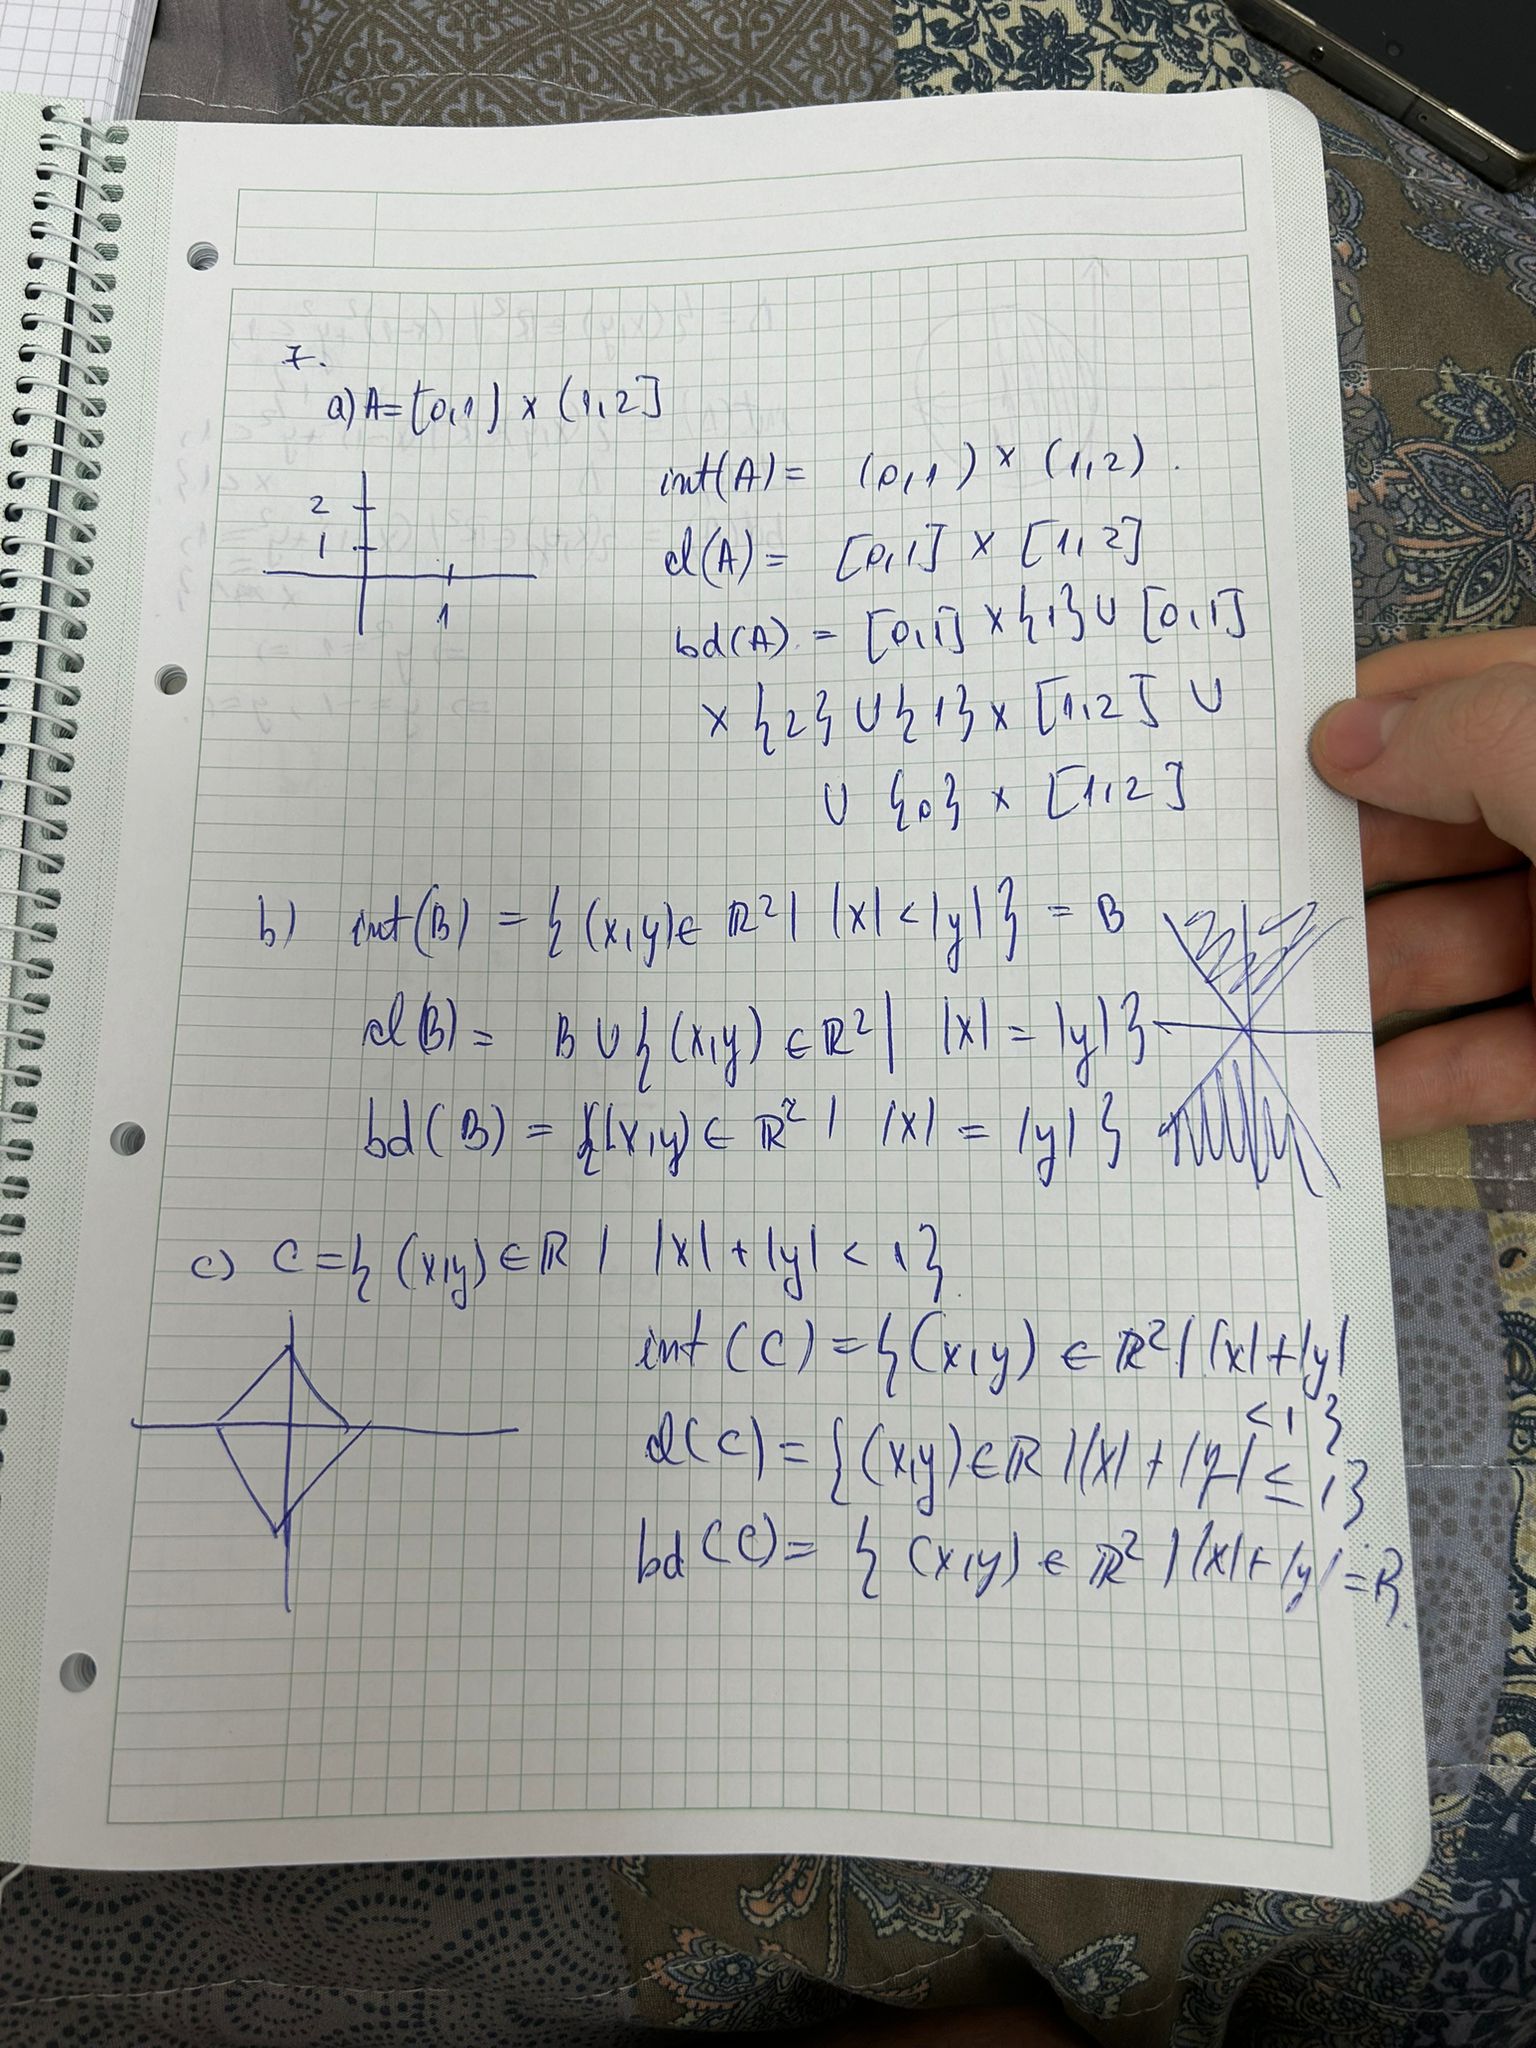 7.
a) A = [0,1) × (1,2]
2
1
1
int(A) = (0,1) × (1,2).
cl(A) = [0,1] × [1,2]
bd(A) = [0,1] × {1} ∪ [0,1]
× {2} ∪ {1} × [1,2] ∪
∪ {0} × [1,2]
b) int(B) = {(x,y) ∈ ℝ² | |x| < |y|} = B
cl(B) = B ∪ {(x,y) ∈ ℝ² | |x| = |y|}
bd(B) = {(x,y) ∈ ℝ² | |x| = |y|}
c) C = {(x,y) ∈ ℝ | |x| + |y| < 1}
int(C) = {(x,y) ∈ ℝ² | |x| + |y|
< 1}
cl(C) = {(x,y) ∈ ℝ | |x| + |y| ≤ 1}
bd(C) = {(x,y) ∈ ℝ² | |x| + |y| = 1}.